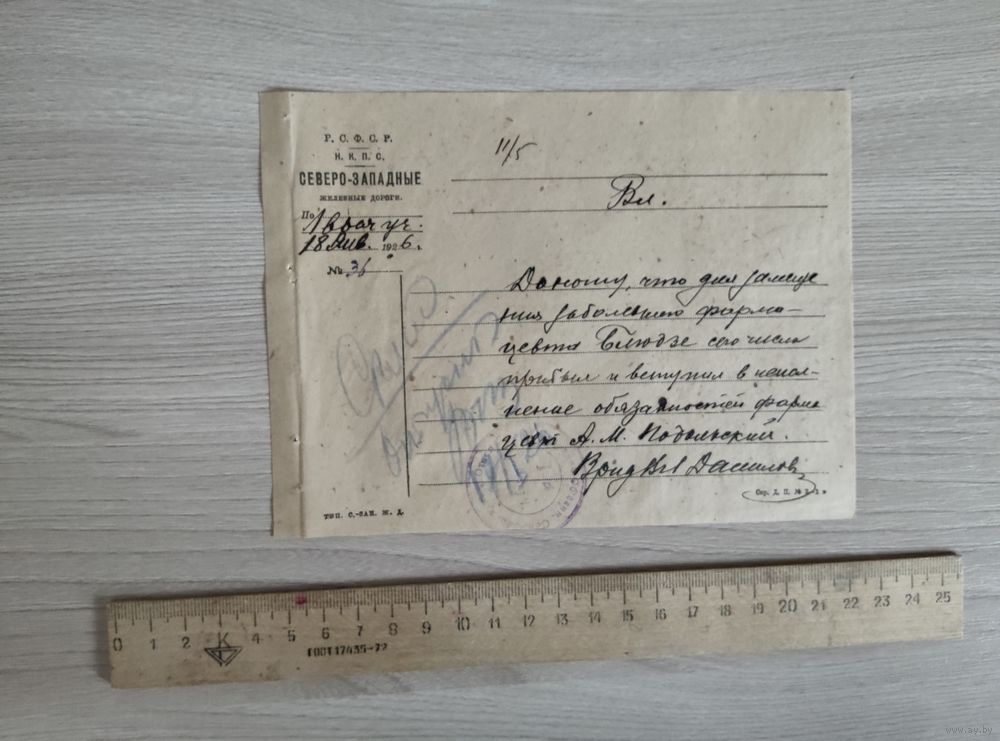 Р. С. Ф. С. Р.
Н. К. П. С.
СЕВЕРО-ЗАПАДНЫЕ
ЖЕЛЕЗНЫЕ ДОРОГИ.
По 1 врач уч.
18 Янв. 1926 г.
№ 36
11/5
Вл.
Доношу, что для замеще
ния заболевшего фарма-
цевта Блюдзе сего числа
прибыл и вступил в испол-
нение обязанностей фарма
цевт А. М. Подольский.
Врид Вл Данилов
Окр. Д. П. №
ТИП. С.-ЗАП. Ж. Д.
0 1 2 К 4 5 6 7 8 9 10 11 12 13 14 15 16 17 18 19 20 21 22 23 24 25
ГОСТ 17435-72
www.ay.by